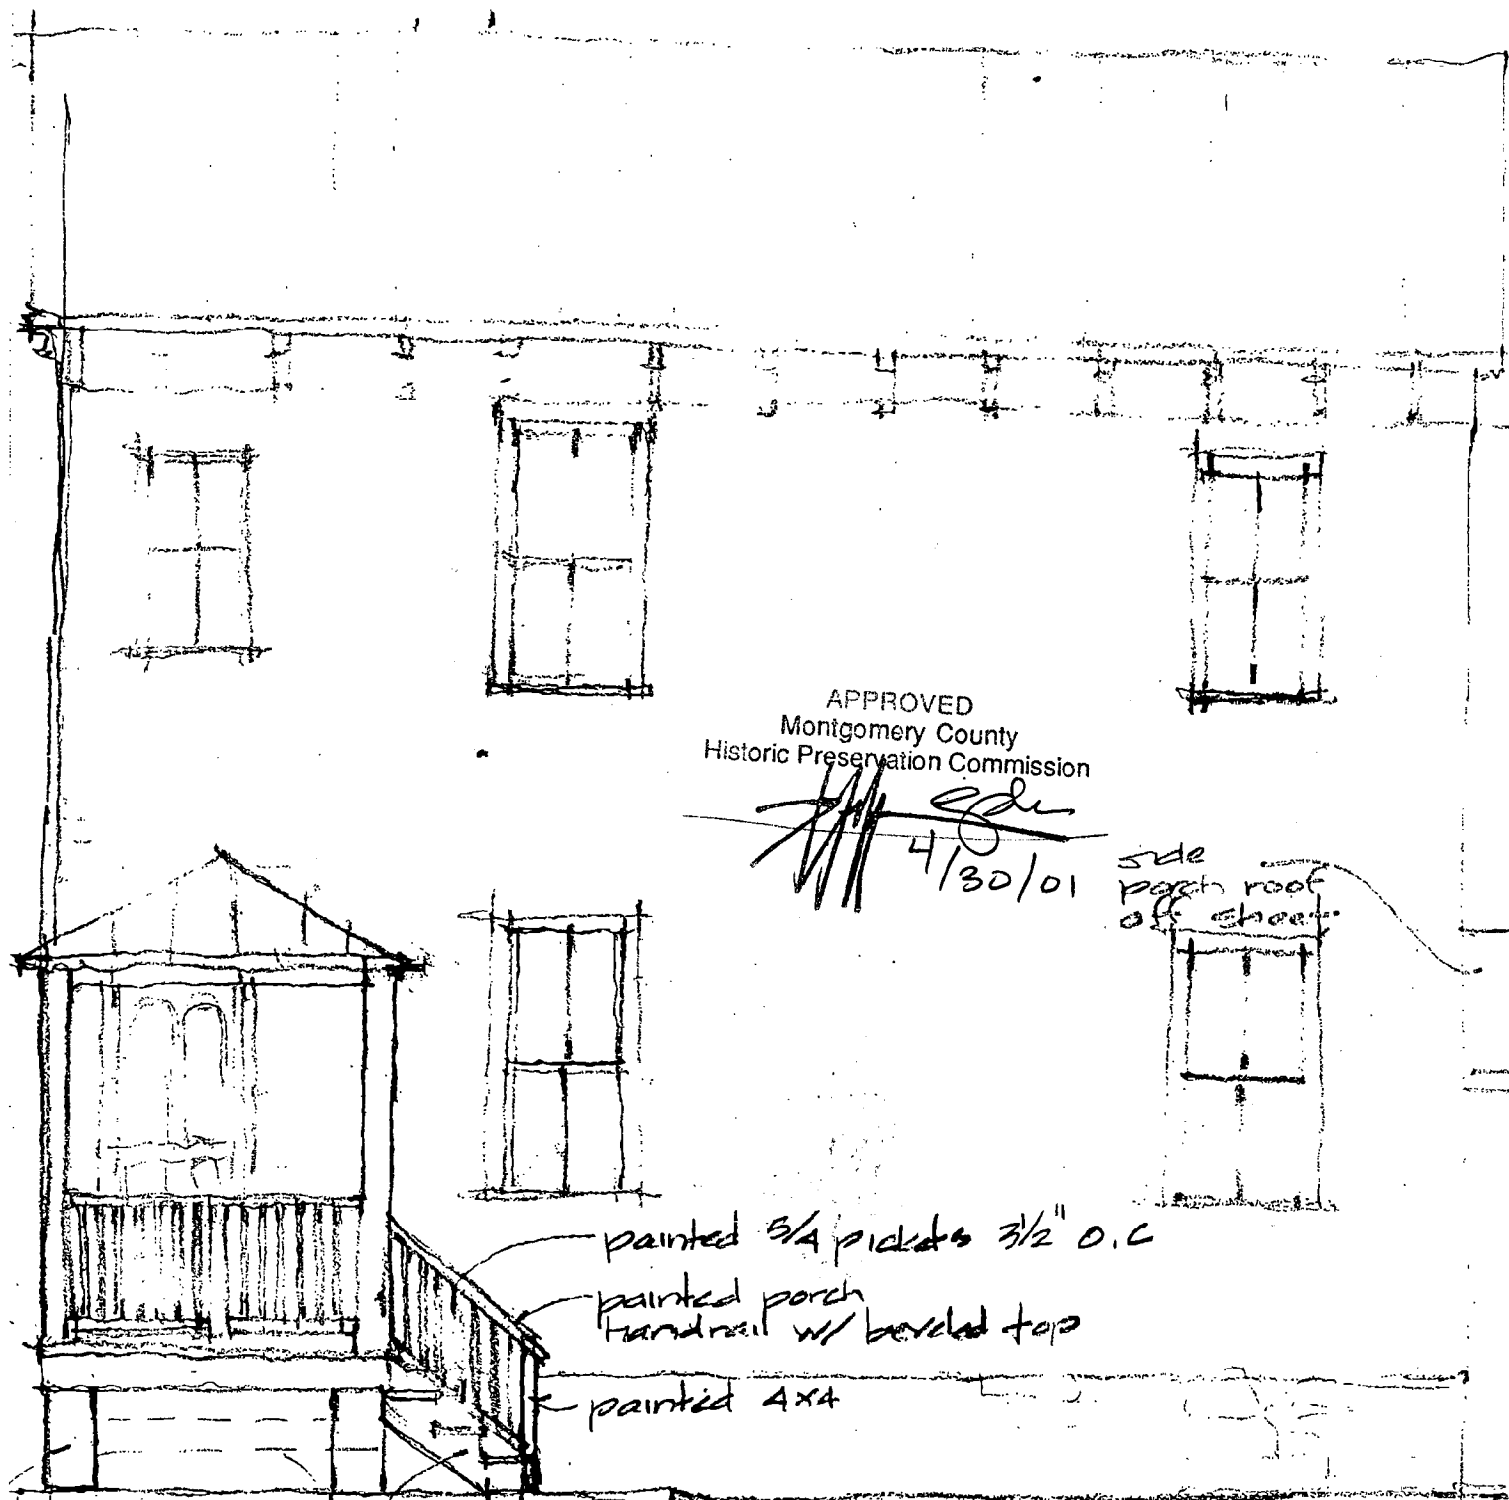 APPROVED
Montgomery County
Historic Preservation Commission
4/30/01
side
porch roof
off sheet
painted 5/4 pickets 3 1/2" O.C
painted porch
handrail w/ beveled top
painted 4x4